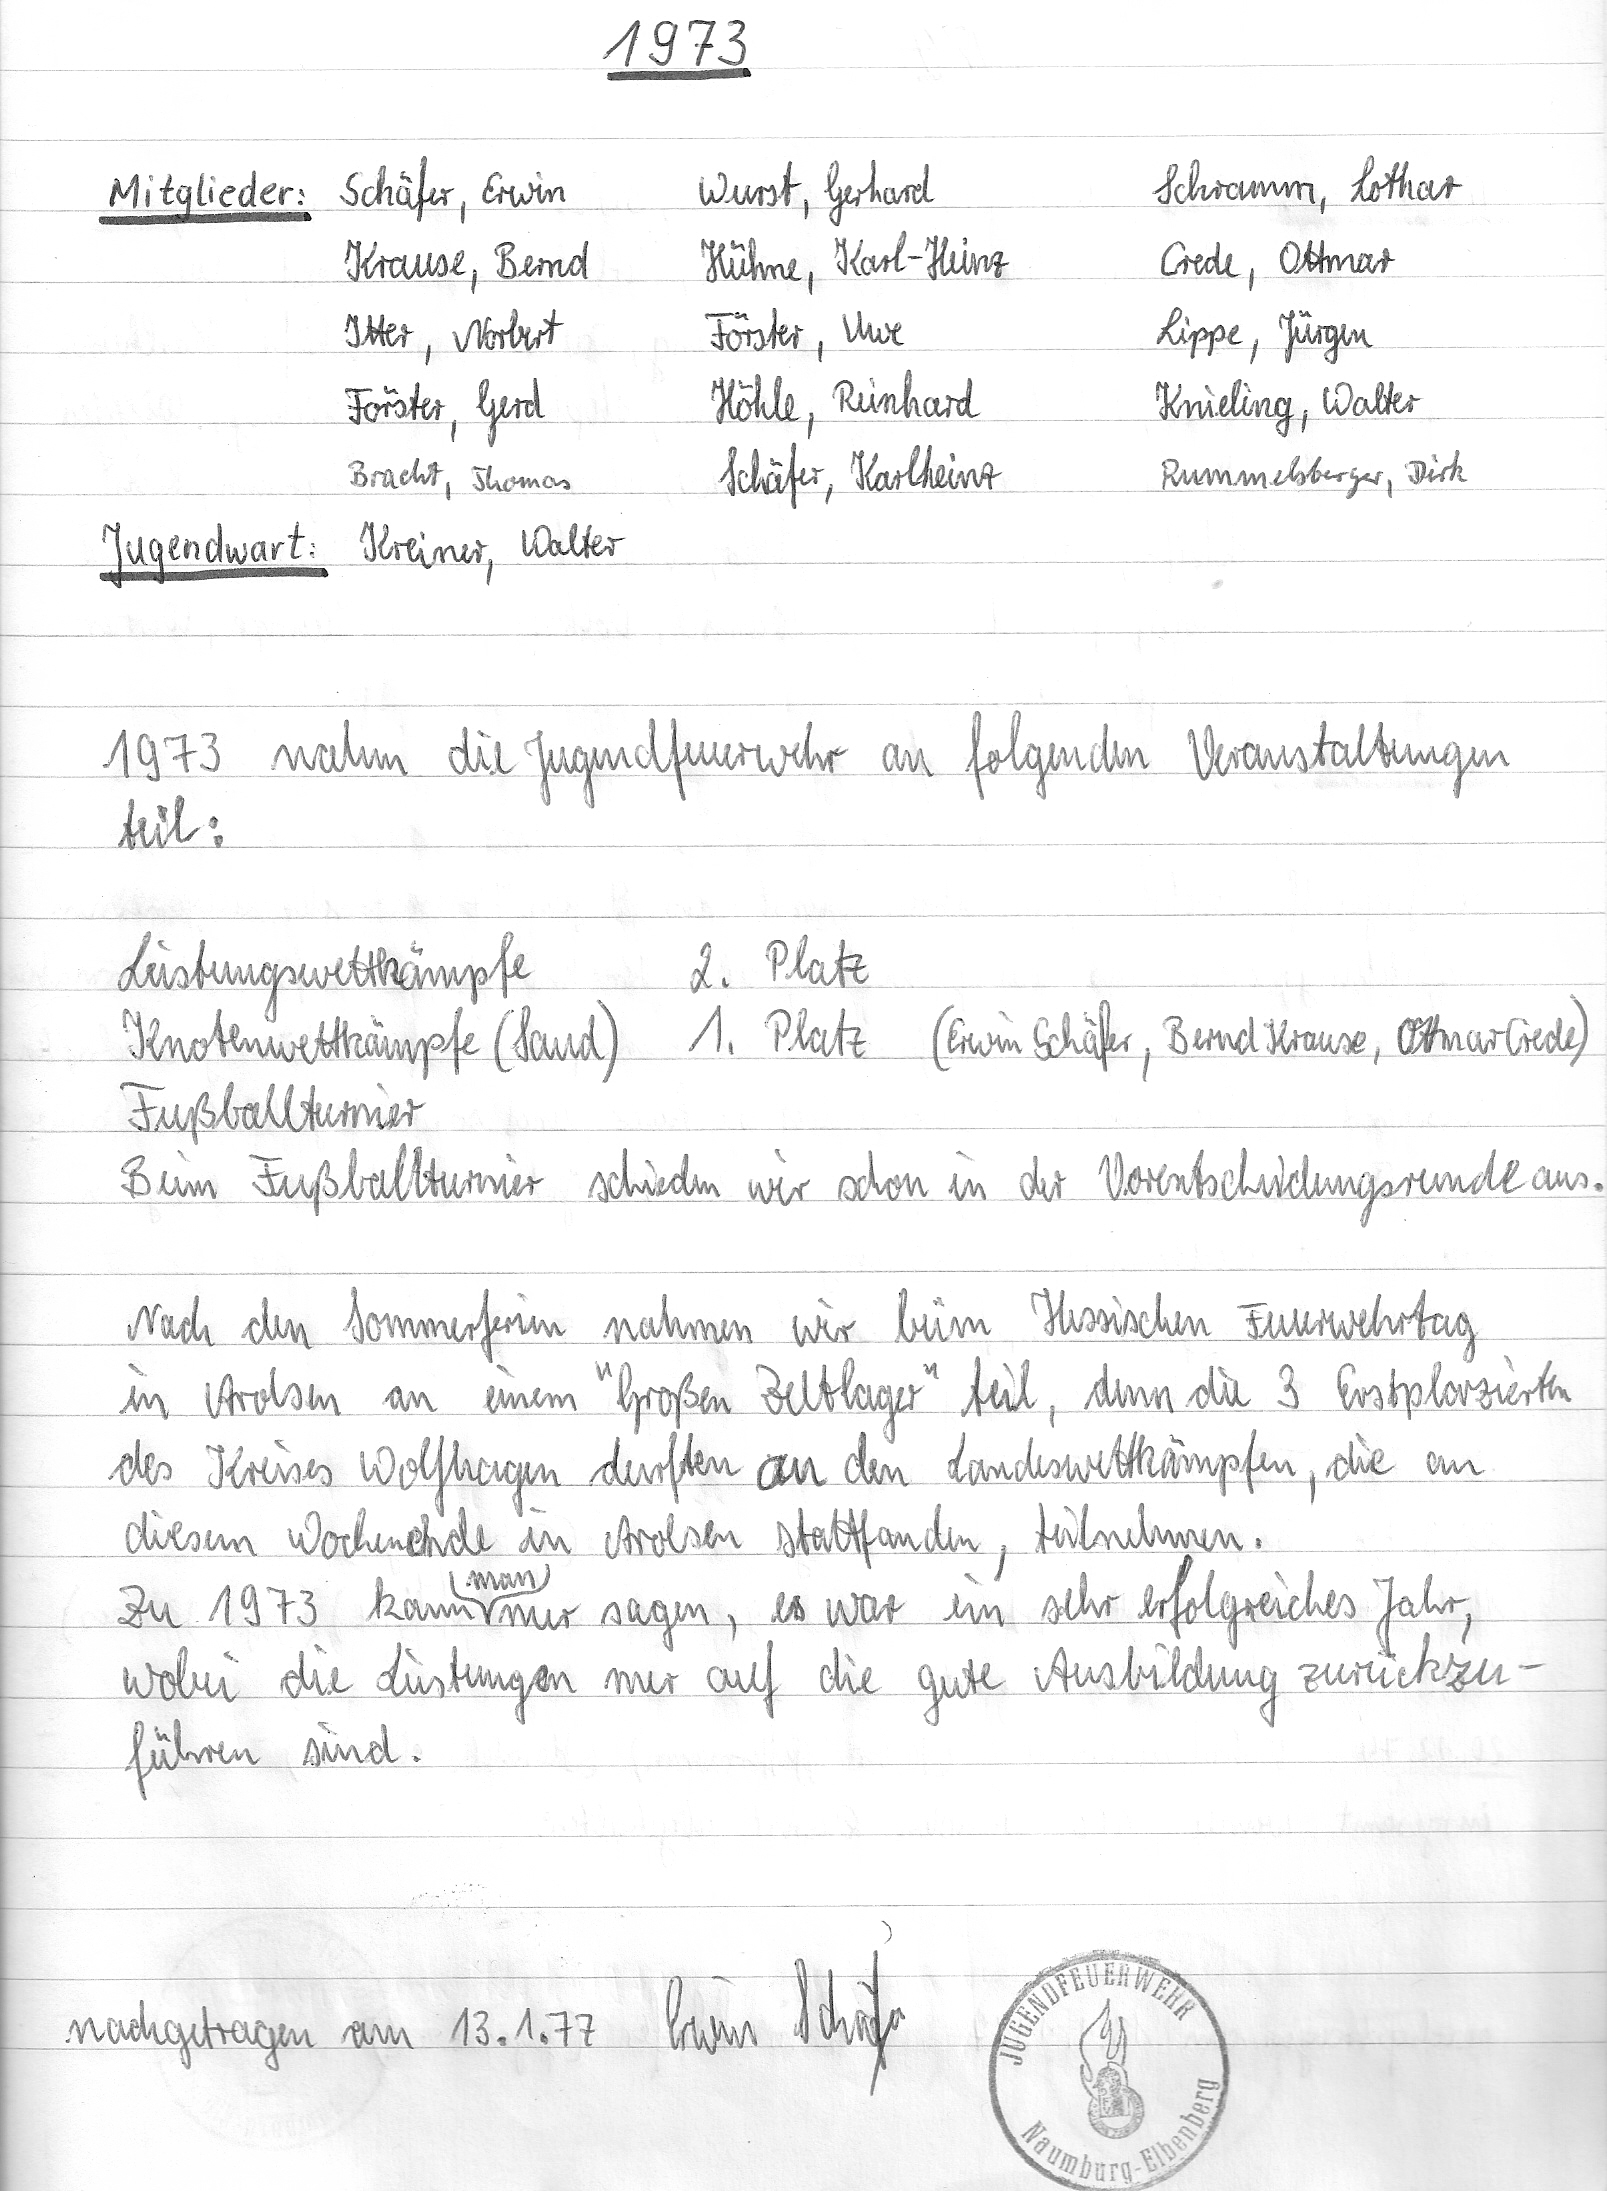 1973
Mitglieder: Schäfer, Erwin Wurst, Gerhard Schramm, Lothar
Krause, Bernd Hühne, Karl-Heinz Crede, Ottmar
Itter, Norbert Förster, Uwe Lippe, Jürgen
Förster, Gerd Höhle, Reinhard Knieling, Walter
Bracht, Thomas Schäfer, Karlheinz Rummelsberger, Dirk
Jugendwart: Kreiner, Walter
1973 nahm die Jugendfeuerwehr an folgenden Veranstaltungen
teil:
Leistungswettkämpfe 2. Platz
Knotenwettkämpfe (Sand) 1. Platz (Erwin Schäfer, Bernd Krause, Ottmar Crede)
Fußballturnier
Beim Fußballturnier schieden wir schon in der Vorentscheidungsrunde aus.
Nach den Sommerferien nahmen wir beim Hessischen Feuerwehrtag
in Arolsen an einem "Großen Zeltlager" teil, denn die 3 Erstplazierten
des Kreises Wolfhagen durften an den Landeswettkämpfen, die an
diesem Wochenende in Arolsen stattfanden, teilnehmen.
Zu 1973 kann (man) nur sagen, es war ein sehr erfolgreiches Jahr,
wobei die Leistungen nur auf die gute Ausbildung zurückzu-
führen sind.
nachgetragen am 13.1.77 Erwin Schäfer
JUGENDFEUERWEHR
Naumburg-Elbenberg